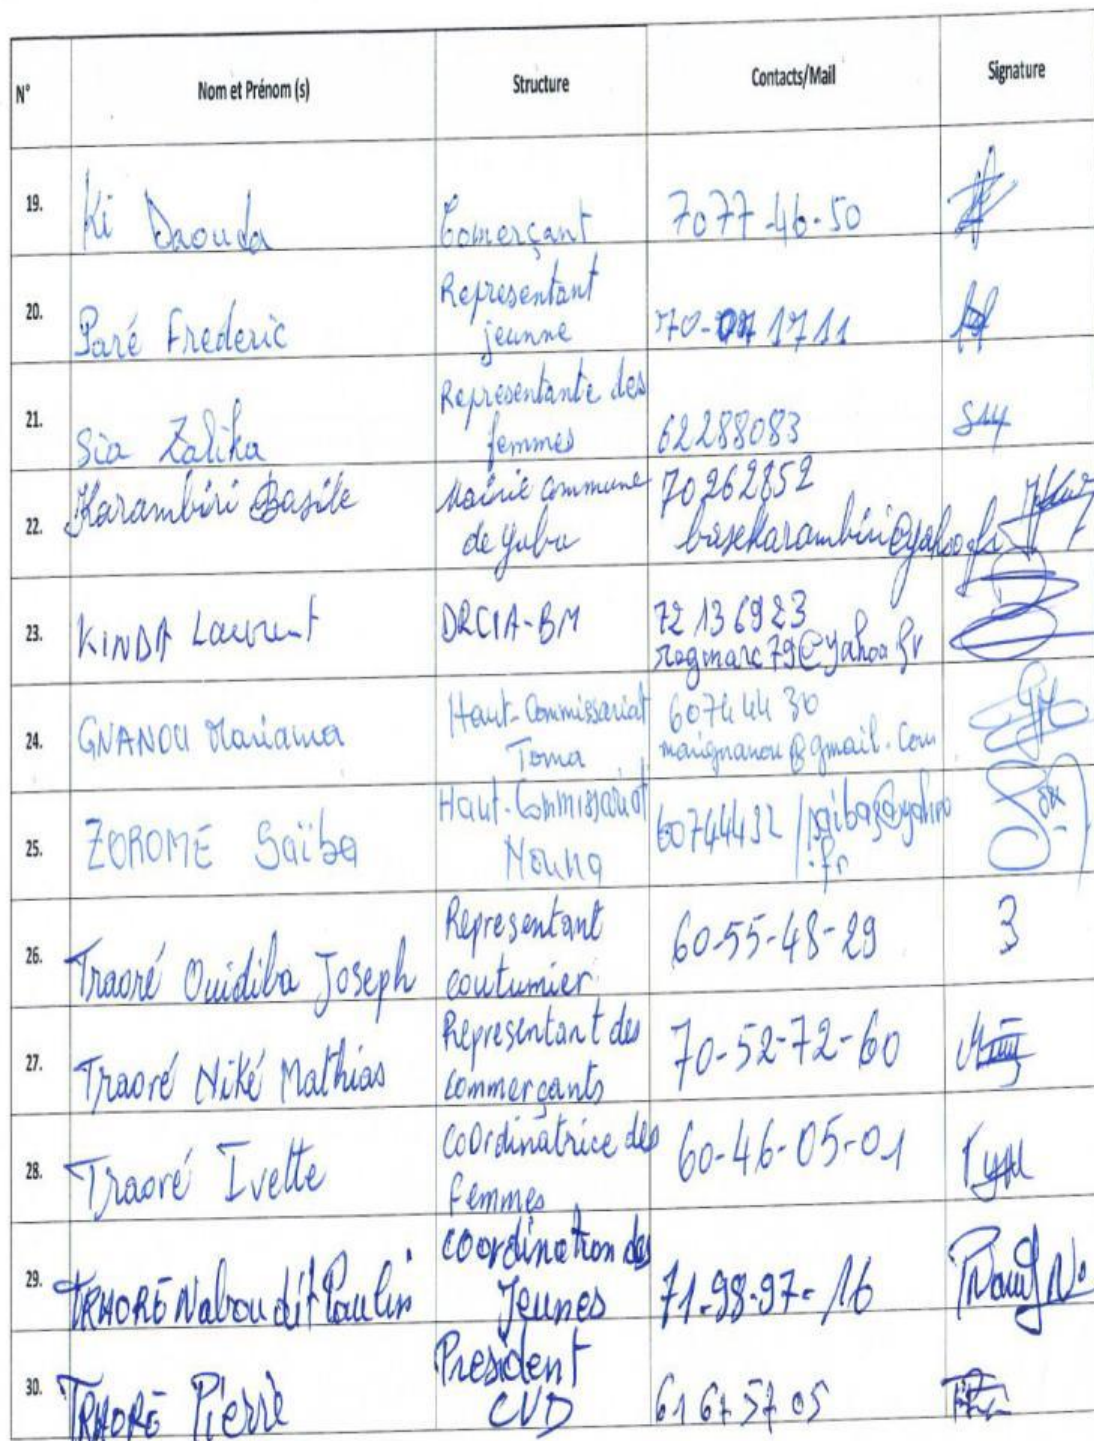 N° Nom et Prénom (s) Structure Contacts/Mail Signature
19. Ki Daouda Comerçant 7077-46-50
20. Paré Frederic Representant jeunne 70- 1711
21. Sia Zalika Representante des femmes 62288083
22. Karambiri Basile Mairie commune de Yaba 70262852
basekarambiri@yahoo.fr
23. KINDA Laurent DRCIA-BM 72 13 69 23
ragmarc79@yahoo.fr
24. GNANOU Mariama Haut-Commissariat Toma 60744430
marignanou@gmail.com
25. ZOROME Saïba Haut-Commissariat Nouna 60744432 /
26. Traoré Ouidiba Joseph Representant coutumier 60-55-48-29
27. Traoré Niké Mathias Representant des commerçants 70-52-72-60
28. Traoré Ivette Coordinatrice des femmes 60-46-05-01
29. TRAORÉ Nabou dit Paulin coordination des Jeunes 71-98-97-16
30. TRAORÉ Pierre President CVD 61 67 57 05